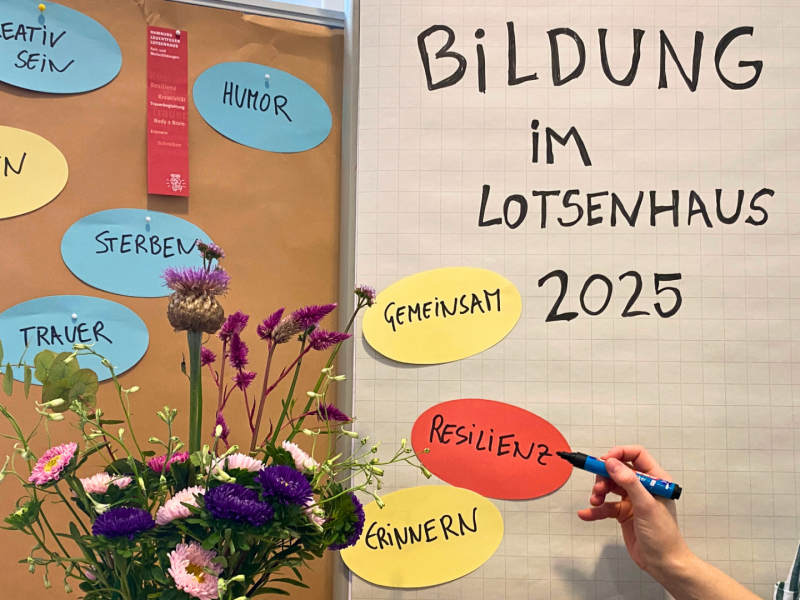 KREATIV
SEIN
HAMBURG
LEUCHTFEUER
LOTSENHAUS
Fort- und
Weiterbildungen
Resilienz
Kreativität
Trauerbegleitung
Trauer
Body & Brain
Erinnern
Schreiben
HUMOR
STERBEN
TRAUER
BILDUNG
IM
LOTSENHAUS
2025
GEMEINSAM
RESILIENZ
ERINNERN